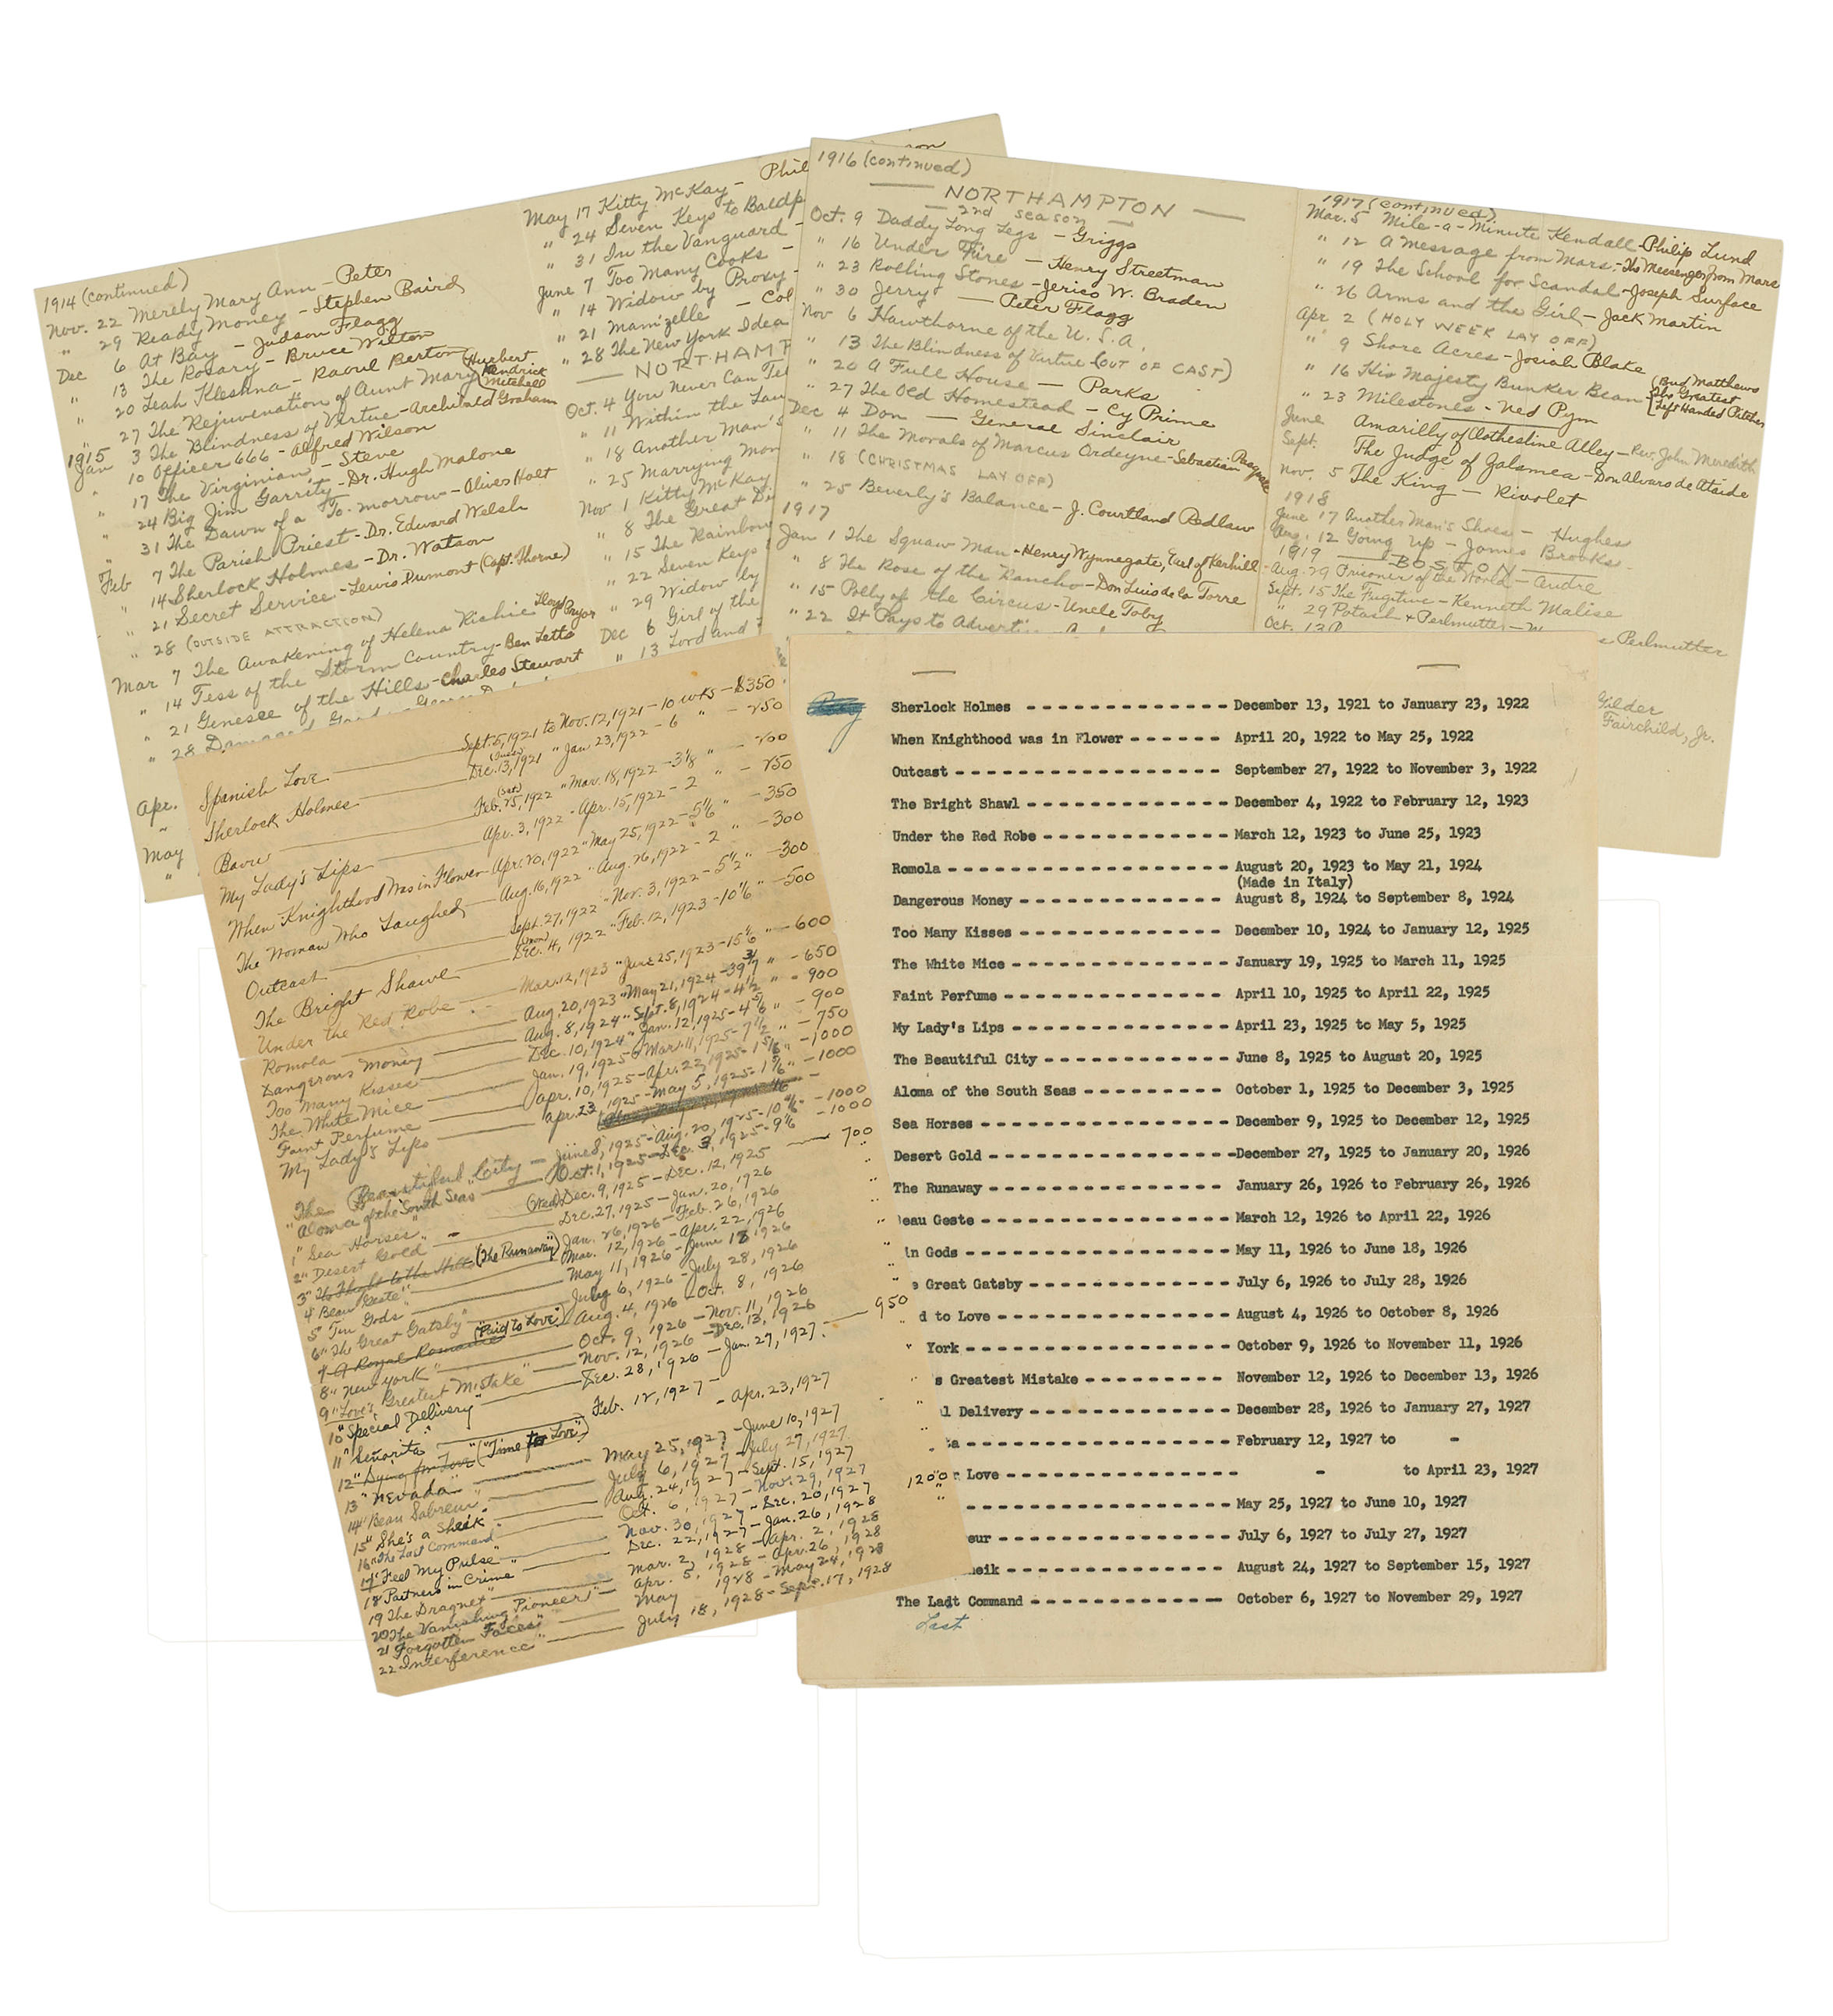 1914 (continued)
Nov. 22 Merely Mary Ann - Peter
" 29 Ready Money - Stephen Baird
Dec 6 At Bay - Judson Flagg
" 13 The Rosary - Bruce Wilton
" 20 Leah Kleshna - Raoul Berton
" 27 The Rejuvenation of Aunt Mary (Hubert Kendrick Mitchell
1915
Jan 3 The Blindness of Virtue - Archibald Graham
" 10 Officer 666 - Alfred Wilson
" 17 The Virginian - Steve
" 24 Big Jim Garrity - Dr. Hugh Malone
" 31 The Dawn of a To-morrow - Oliver Holt
Feb 7 The Parish Priest - Dr. Edward Welsh
" 14 Sherlock Holmes - Dr. Watson
" 21 Secret Service - Lewis Dumont (Capt. Thorne)
" 28 (OUTSIDE ATTRACTION)
Mar 7 The Awakening of Helena Richie Lloyd Pryor
" 14 Tess of the Storm Country - Ben Letts
" 21 Genesee of the Hills - Charles Stewart
" 28 Damaged
Apr.
"
May
"
May 17 Kitty McKay - Phil
" 24 Seven Keys to Baldp
" 31 In the Vanguard -
June 7 Too Many Cooks -
" 14 Widow by Proxy -
" 21 Mam'zelle - Col
" 28 The New York Idea
NORTHAMP
Oct. 4 You Never Can Tel
" 11 Within the Law
" 18 Another Man's
" 25 Marrying Mon
Nov 1 Kitty McKay
" 8 The Great Di
" 15 The Rainbow
" 22 Seven Keys
" 29 Widow by
Dec 6 Girl of the
" 13 Lord and
1916 (continued)
NORTHAMPTON
2nd season
Oct. 9 Daddy Long Legs - Griggs
" 16 Under Fire - Henry Streetman
" 23 Rolling Stones - Jerico W. Braden
" 30 Jerry - Peter Flagg
Nov 6 Hawthorne of the U.S.A.
" 13 The Blindness of Virtue (OUT OF CAST)
" 20 A Full House - Parks
" 27 The Old Homestead - Cy Prime
Dec 4 Don - General Sinclair
" 11 The Morals of Marcus Ordeyne - Sebastian Pasquale
" 18 (CHRISTMAS LAY OFF)
" 25 Beverly's Balance - J. Courtland Redlaw
1917
Jan 1 The Squaw Man - Henry Wynnegate, Earl of Kerhill
" 8 The Rose of the Rancho - Don Luis de la Torre
" 15 Polly of the Circus - Uncle Toby
" 22 It Pays to Adverti
1917 (continued)
Mar. 5 Mile-a-Minute Kendall - Philip Lund
" 12 A Message from Mars - The Messenger from Mars
" 19 The School for Scandal - Joseph Surface
" 26 Arms and the Girl - Jack Martin
Apr 2 (HOLY WEEK LAY OFF)
" 9 Shore Acres - Josiah Blake
" 16 His Majesty Bunker Bean (Bud Matthews The Greatest Left Handed Pitcher
" 23 Milestones - Ned Pym
June Amarilly of Clothesline Alley - Rev. John Meredith
Sept. The Judge of Zalamea - Don Alvaro de Ataide
Nov. 5 The King - Rivolet
1918
June 17 Another Man's Shoes - Hughes
Aug. 12 Going Up - James Brooks
1919 BOSTON
Aug. 29 Prisoner of the World - Andre
Sept. 15 The Fugitive - Kenneth Malise
" 29 Potash & Perlmutter - M
Oct. 13 P s Perlmutter
Gilder
Fairchild, Jr.
Spanish Love Sept. 5, 1921 to Nov. 12, 1921 - 10 wks - $350
Sherlock Holmes (Tues) Dec. 13, 1921 " Jan. 23, 1922 - 6 " - 250
Bavu (Sat) Feb. 25, 1922 " Mar. 18, 1922 - 3 1/8 " - 200
My Lady's Lips Apr. 3, 1922 - Apr. 15, 1922 - 2 " - 250
When Knighthood Was in Flower Apr. 20, 1922 " May 25, 1922 - 5 1/6 " - 350
The Woman Who Laughed Aug. 16, 1922 " Aug. 26, 1922 - 2 " - 300
Outcast Sept. 27, 1922 " Nov. 3, 1922 - 5 1/2 " - 300
The Bright Shawl (Mon) Dec. 4, 1922 " Feb. 12, 1923 - 10 1/6 " - 500
Under the Red Robe Mar. 12, 1923 " June 25, 1923 - 15 1/6 " - 600
Romola Aug. 20, 1923 " May 21, 1924 - 39 3/7 " - 650
Dangerous Money Aug. 8, 1924 " Sept. 8, 1924 - 4 1/2 " - 900
Too Many Kisses Dec. 10, 1924 " Jan. 12, 1925 - 4 5/6 " - 900
The White Mice Jan. 19, 1925 " Mar. 11, 1925 - 7 1/2 " - 750
Faint Perfume Apr. 10, 1925 - Apr. 22, 1925 - 1 5/6 " - 1000
My Lady's Lips Apr. 23, 1925 - May 5, 1925 - 1 5/6 " - 1000
"The Beautiful City - June 8, 1925 - Aug. 20, 1925 - 10 - 1000
"Aloma of the South Seas" Oct. 1, 1925 - Dec. 3, 1925 - 9 1/6 - 1000
1 "Sea Horses" (Wed) Dec. 9, 1925 - Dec. 12, 1925 700
2 "Desert Gold Dec. 27, 1925 - Jan. 20, 1926 "
3 (The Runaway) Jan. 26, 1926 - Feb. 26, 1926
4 "Beau Geste" Mar. 12, 1926 - Apr. 22, 1926 "
5 "Tin Gods" May 11, 1926 - June 18 1926 "
6 "The Great Gatsby" July 6, 1926 - July 28, 1926 "
7 A Royal Romance ("Paid to Love") Aug. 4, 1926 - Oct. 8, 1926 950
8 "New York" Oct. 9, 1926 - Nov. 11, 1926 "
9 "Love's Greatest Mistake" Nov. 12, 1926 - Dec. 13, 1926 "
10 "Special Delivery" Dec. 28, 1926 - Jan. 27, 1927 "
11 "Señorita" Feb. 12, 1927 -
12 "Dying for Love" ("Time for Love") - Apr. 23, 1927
13 "Nevada" May 25, 1927 - June 10, 1927 1200
14 "Beau Sabreur" July 6, 1927 - July 27, 1927 "
15 "She's a Sheik" Aug. 24, 1927 - Sept. 15, 1927
16 "The Last Command Oct. 6, 1927 - Nov. 29, 1927
17 "Feel My Pulse" Nov. 30, 1927 - Dec. 20, 1927
18 "Partners in Crime" Dec. 22, 1927 - Jan. 26, 1928
19 The Dragnet" Mar. 2, 1928 - Apr. 2, 1928
20 The Vanishing Pioneer" Apr. 5, 1928 - Apr. 26, 1928
21 Forgotten Faces" May 1928 - May 24, 1928
22 Interference" July 18, 1928 - Sept. 17, 1928
Sherlock Holmes - December 13, 1921 to January 23, 1922
When Knighthood was in Flower - April 20, 1922 to May 25, 1922
Outcast - September 27, 1922 to November 3, 1922
The Bright Shawl - December 4, 1922 to February 12, 1923
Under the Red Robe - March 12, 1923 to June 25, 1923
Romola - August 20, 1923 to May 21, 1924
(Made in Italy)
Dangerous Money - August 8, 1924 to September 8, 1924
Too Many Kisses - December 10, 1924 to January 12, 1925
The White Mice - January 19, 1925 to March 11, 1925
Faint Perfume - April 10, 1925 to April 22, 1925
My Lady's Lips - April 23, 1925 to May 5, 1925
The Beautiful City - June 8, 1925 to August 20, 1925
Aloma of the South Seas - October 1, 1925 to December 3, 1925
Sea Horses - December 9, 1925 to December 12, 1925
Desert Gold - December 27, 1925 to January 20, 1926
The Runaway - January 26, 1926 to February 26, 1926
eau Geste - March 12, 1926 to April 22, 1926
in Gods - May 11, 1926 to June 18, 1926
e Great Gatsby - July 6, 1926 to July 28, 1926
d to Love - August 4, 1926 to October 8, 1926
York - October 9, 1926 to November 11, 1926
s Greatest Mistake - November 12, 1926 to December 13, 1926
l Delivery - December 28, 1926 to January 27, 1927
ta - February 12, 1927 to -
r Love - - to April 23, 1927
- May 25, 1927 to June 10, 1927
eur - July 6, 1927 to July 27, 1927
heik - August 24, 1927 to September 15, 1927
The Ladt Command - October 6, 1927 to November 29, 1927
Last